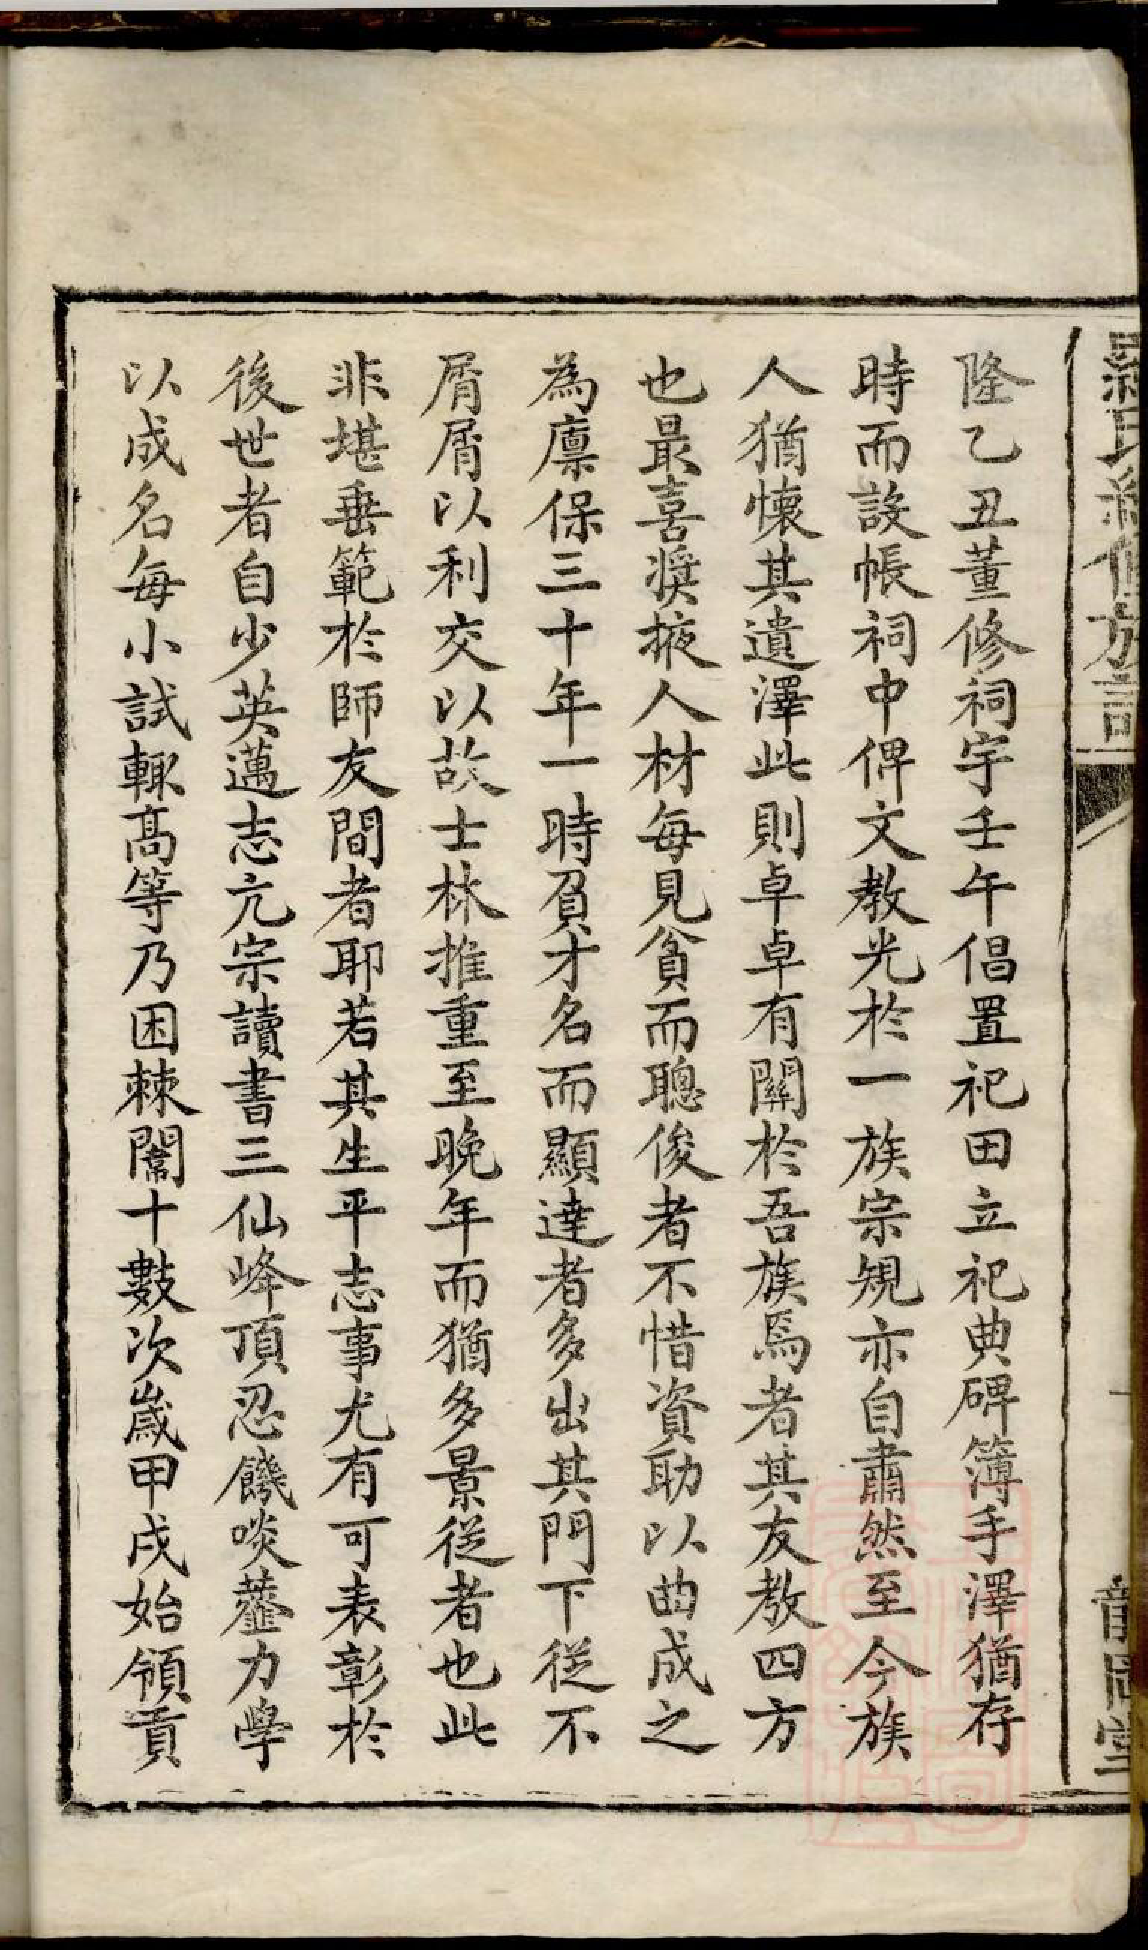 隆乙丑董修祠宇壬午倡置祀田立祀典碑簿手澤猶存
時而設帳祠中俾文教光於一族宗規亦自肅然至今族
人猶懷其遺澤此則卓卓有關於吾族焉者其友教四方
也最喜奬掖人材每見貧而聰俊者不惜資助以曲成之
為廪保三十年一時負才名而顯達者多出其門下從不
屑屑以利交以故士林推重至晚年而猶多景從者也此
非堪垂範於師友間者耶若其生平志事尤有可表彰於
後世者自少英邁志亢宗讀書三仙峰頂忍饑啖虀力學
以成名每小試輒高等乃困棘闈十數次歲甲戌始領貢